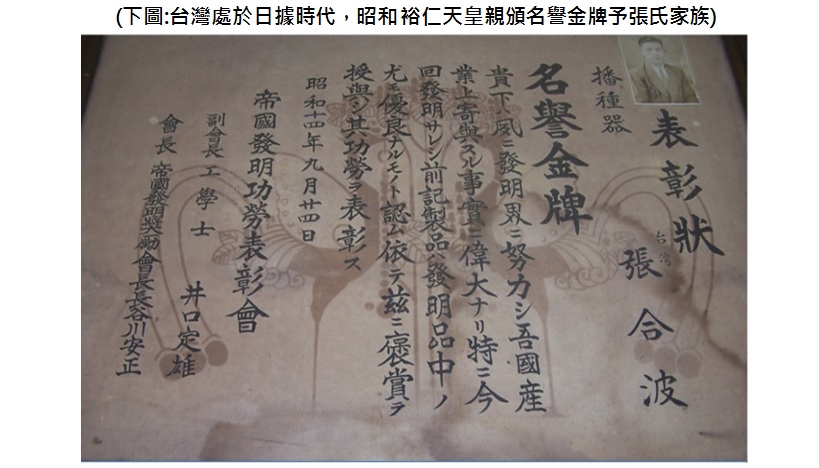 (下圖:台灣處於日據時代，昭和裕仁天皇親頒名譽金牌予張氏家族)
表彰狀
台湾 張合波
播種器
名譽金牌
貴下夙ニ發明界ニ努力シ吾國産
業上寄與スル事實ニ偉大ナリ特ニ今
回發明サレシ前記製品ハ發明品中ノ
尤モ優良ナルモノト認ム依テ茲ニ褒賞ヲ
授與シ其功勞ヲ表彰ス
昭和十四年九月廿四日
帝國發明功勞表彰會
副會長 工學士 井口定雄
會長 帝國發明奨励會長長谷川安正